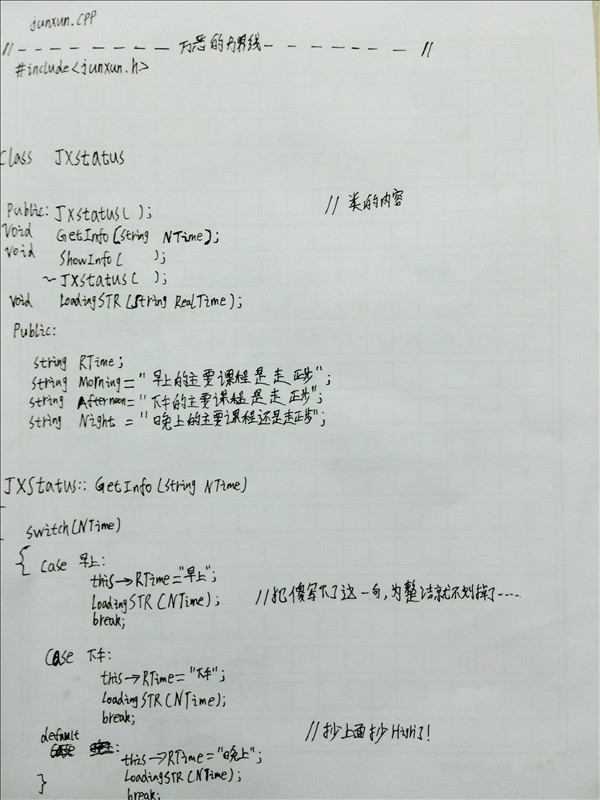 junxun.CPP
//------------万恶的分界线------------//
#include<junxun.h>
Class JXstatus
Public: JXstatus( ); //类的内容
Void GetInfo(String NTime);
void ShowInfo( );
~JXstatus( );
void LoadingSTR(String RealTime);
Public:
string RTime;
string Morning="早上的主要课程是走正步";
string Afternoon="下午的主要课程是走正步";
string Night="晚上的主要课程还是走正步";
JXStatus::GetInfo(String NTime)
switch(NTime)
{ case 早上:
this→RTime="早上";
LoadingSTR(NTime); //把傻写不了这一句,为整洁就不划掉了----
break;
case 下午:
this→RTime="下午";
LoadingSTR(NTime);
break; //抄上面抄High了!
default:
this→RTime="晚上";
LoadingSTR(NTime);
} break;